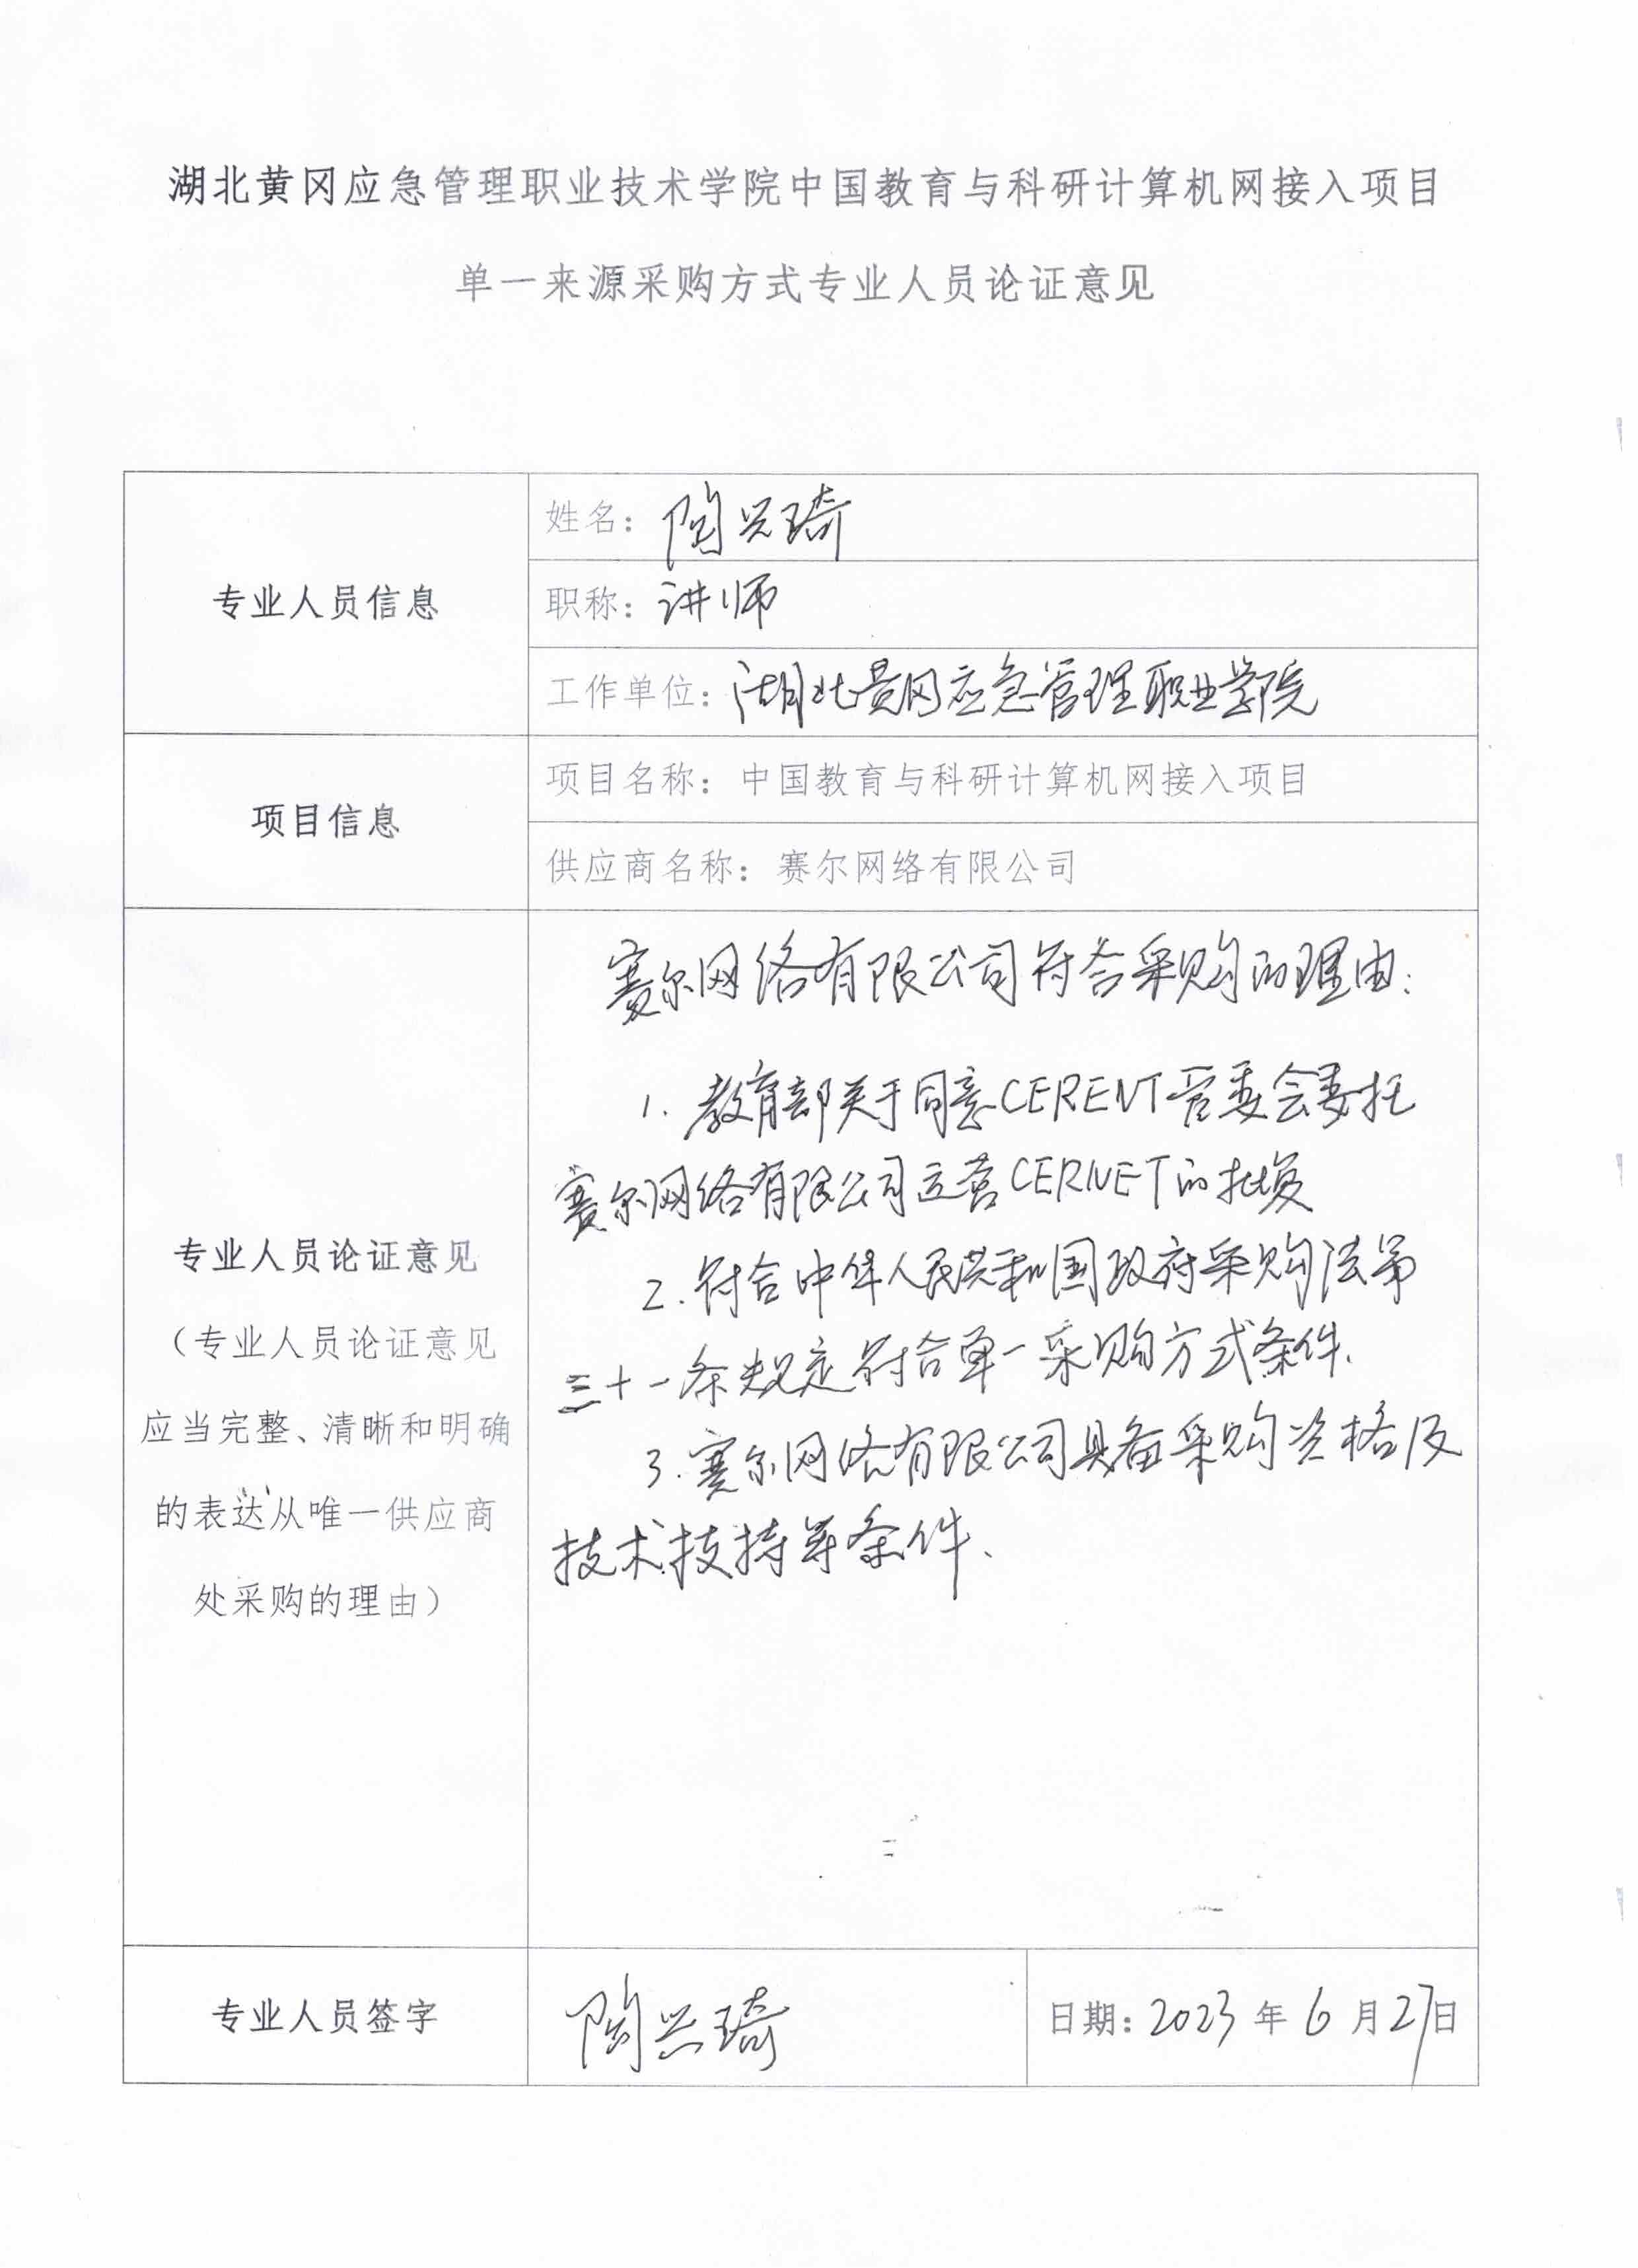 湖北黄冈应急管理职业技术学院中国教育与科研计算机网接入项目
单一来源采购方式专业人员论证意见
专业人员信息
姓名：陶兴琦
职称：讲师
工作单位：湖北黄冈应急管理职业学院
项目信息
项目名称：中国教育与科研计算机网接入项目
供应商名称：赛尔网络有限公司
专业人员论证意见
（专业人员论证意见
应当完整、清晰和明确
的表达从唯一供应商
处采购的理由）
赛尔网络有限公司符合采购的理由：
1. 教育部关于同意CERENT管委会委托
赛尔网络有限公司运营CERNET的批复
2. 符合中华人民共和国政府采购法第
三十一条规定符合单一采购方式条件.
3. 赛尔网络有限公司具备采购资格及
技术技持等条件、
专业人员签字
陶兴琦
日期：2023 年 6 月 27日